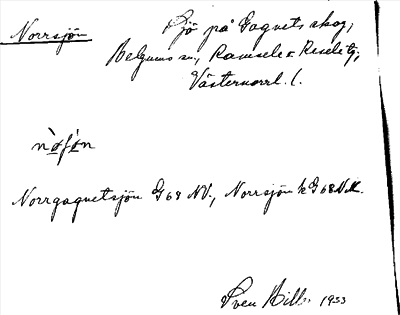 Norrsjön
Sjö på Gagnets skog,
sn, Ramsele o. Resele tg,
Västernorrl. l.
Norrgagnetsjön G 68 NV., Norrsjön k G 68 NV.
Sven 1933